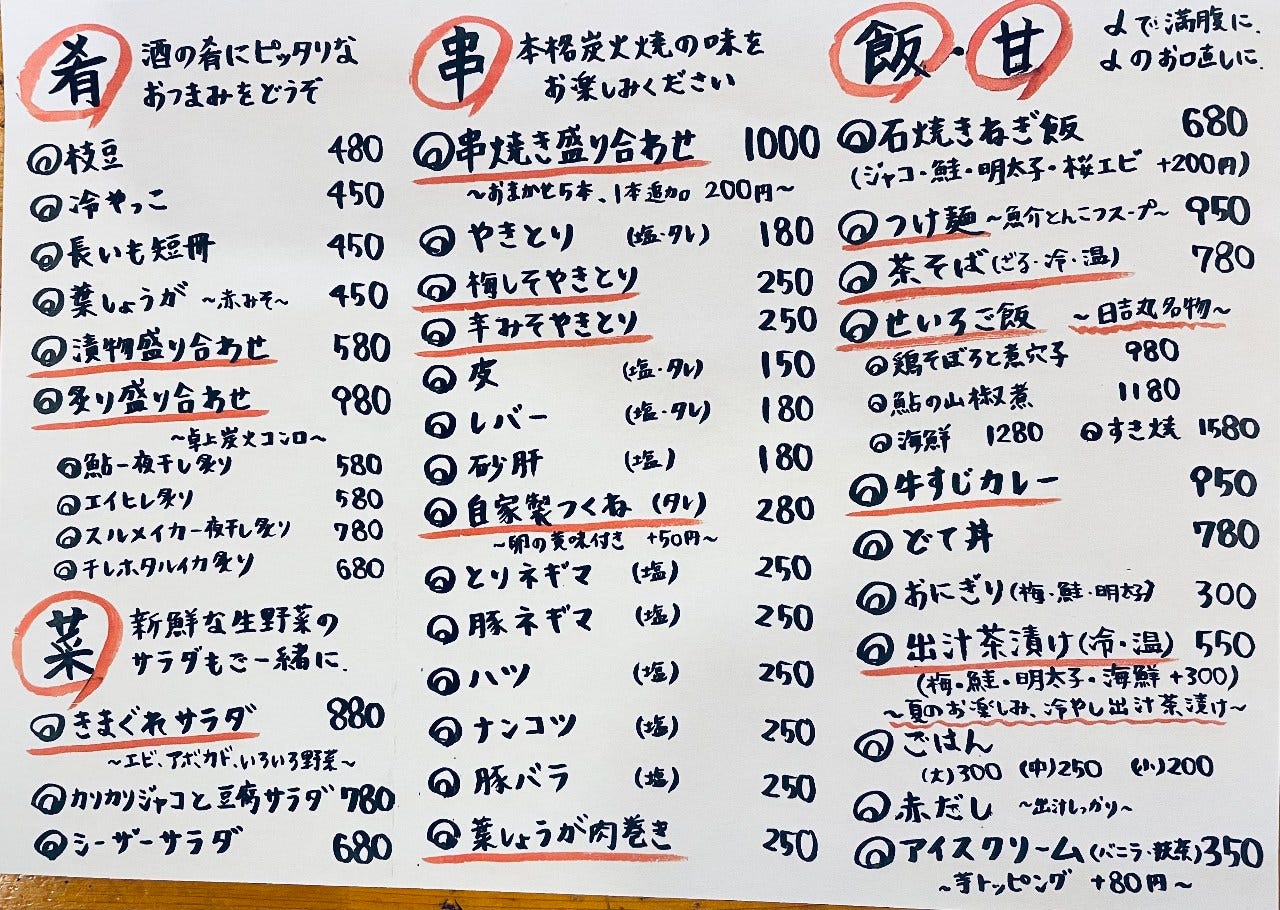 肴
酒の肴にピッタリな
おつまみをどうぞ
枝豆 480
冷やっこ 450
長いも短冊 450
葉しょうが ~赤みそ~ 450
漬物盛り合わせ 580
炙り盛り合わせ 980
~卓上炭火コンロ~
鮎一夜干し炙り 580
エイヒレ炙り 580
スルメイカ一夜干し炙り 780
干しホタルイカ炙り 680
菜
新鮮な生野菜の
サラダもご一緒に.
きまぐれサラダ 880
~エビ、アボカド、いろいろ野菜~
カリカリジャコと豆腐サラダ 780
シーザーサラダ 680
串
本格炭火焼の味を
お楽しみください
串焼き盛り合わせ 1000
~おまかせ5本、1本追加 200円~
やきとり (塩・タレ) 180
梅しそやきとり 250
辛みそやきとり 250
皮 (塩・タレ) 150
レバー (塩・タレ) 180
砂肝 (塩) 180
自家製つくね (タレ) 280
~卵の黄味付き +50円~
とりネギマ (塩) 250
豚ネギマ (塩) 250
ハツ (塩) 250
ナンコツ (塩) 250
豚バラ (塩) 250
葉しょうが肉巻き 250
飯・甘
〆で満腹に.
〆のお口直しに.
石焼きねぎ飯 680
(ジャコ・鮭・明太子・桜エビ +200円)
つけ麺 ~魚介とんこつスープ~ 950
茶そば(ざる・冷・温) 780
せいろご飯 ~日吉丸名物~
鶏そぼろと煮穴子 980
鮎の山椒煮 1180
海鮮 1280 すき焼 1580
牛すじカレー 950
どて丼 780
おにぎり(梅・鮭・明太子) 300
出汁茶漬け(冷・温) 550
(梅・鮭・明太子・海鮮 +300)
~夏のお楽しみ、冷やし出汁茶漬け~
ごはん
(大)300 (中)250 (小)200
赤だし ~出汁しっかり~
アイスクリーム(バニラ・抹茶) 350
~芋トッピング +80円~